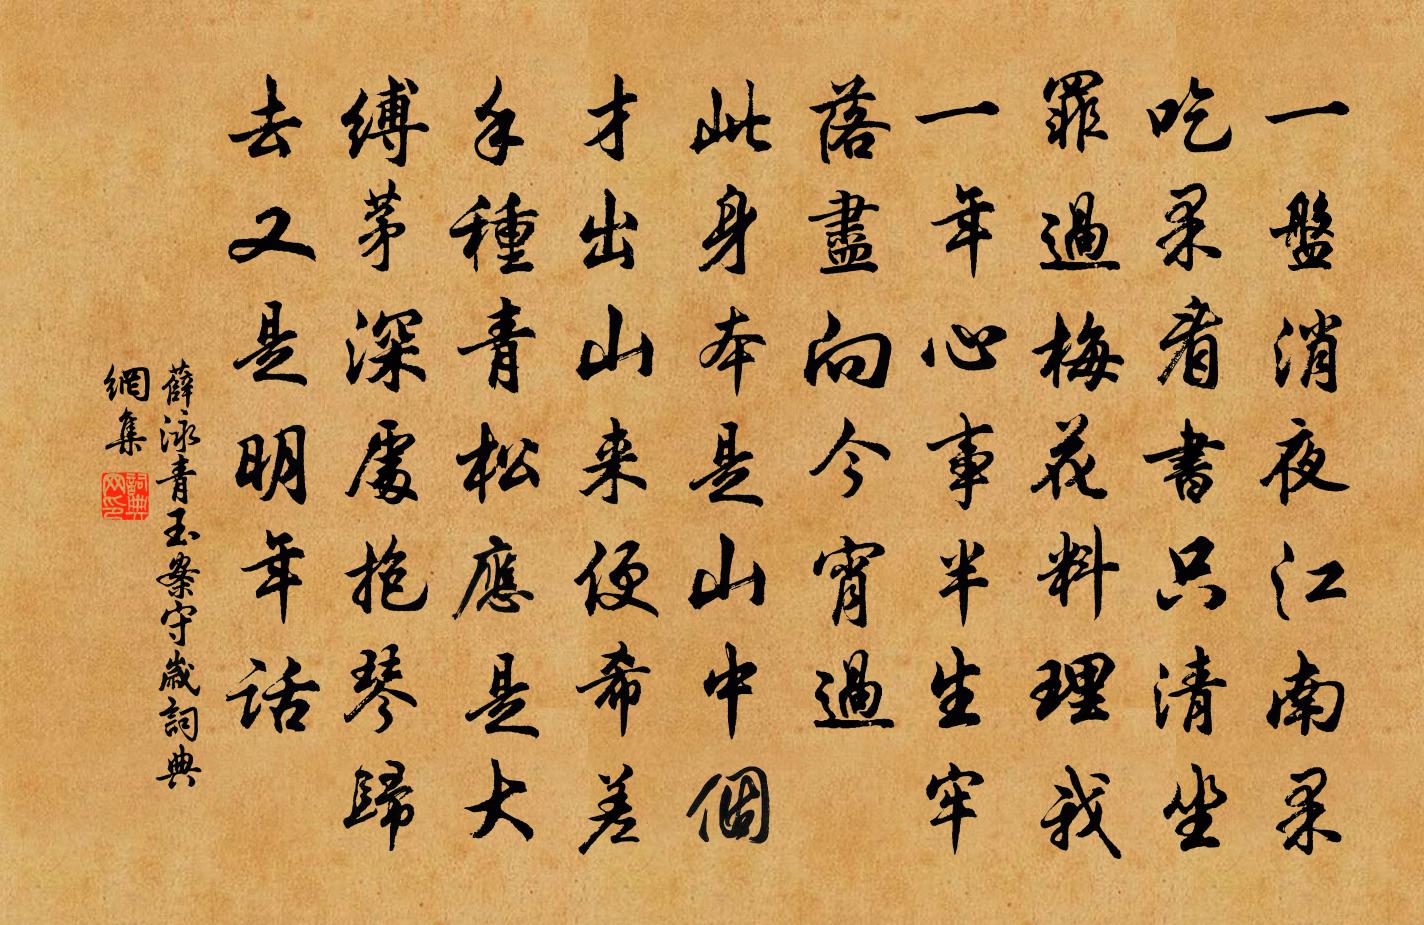 一盤消夜江南果
吃果看書只清坐
罪過梅花料理我
一年心事半生牢
落盡向今宵過
此身本是山中個
才出山来便希差
手種青松應是大
縛茅深處抱琴歸
去又是明年話
薛泳青玉案守歲詞典
網集
詞典
网印